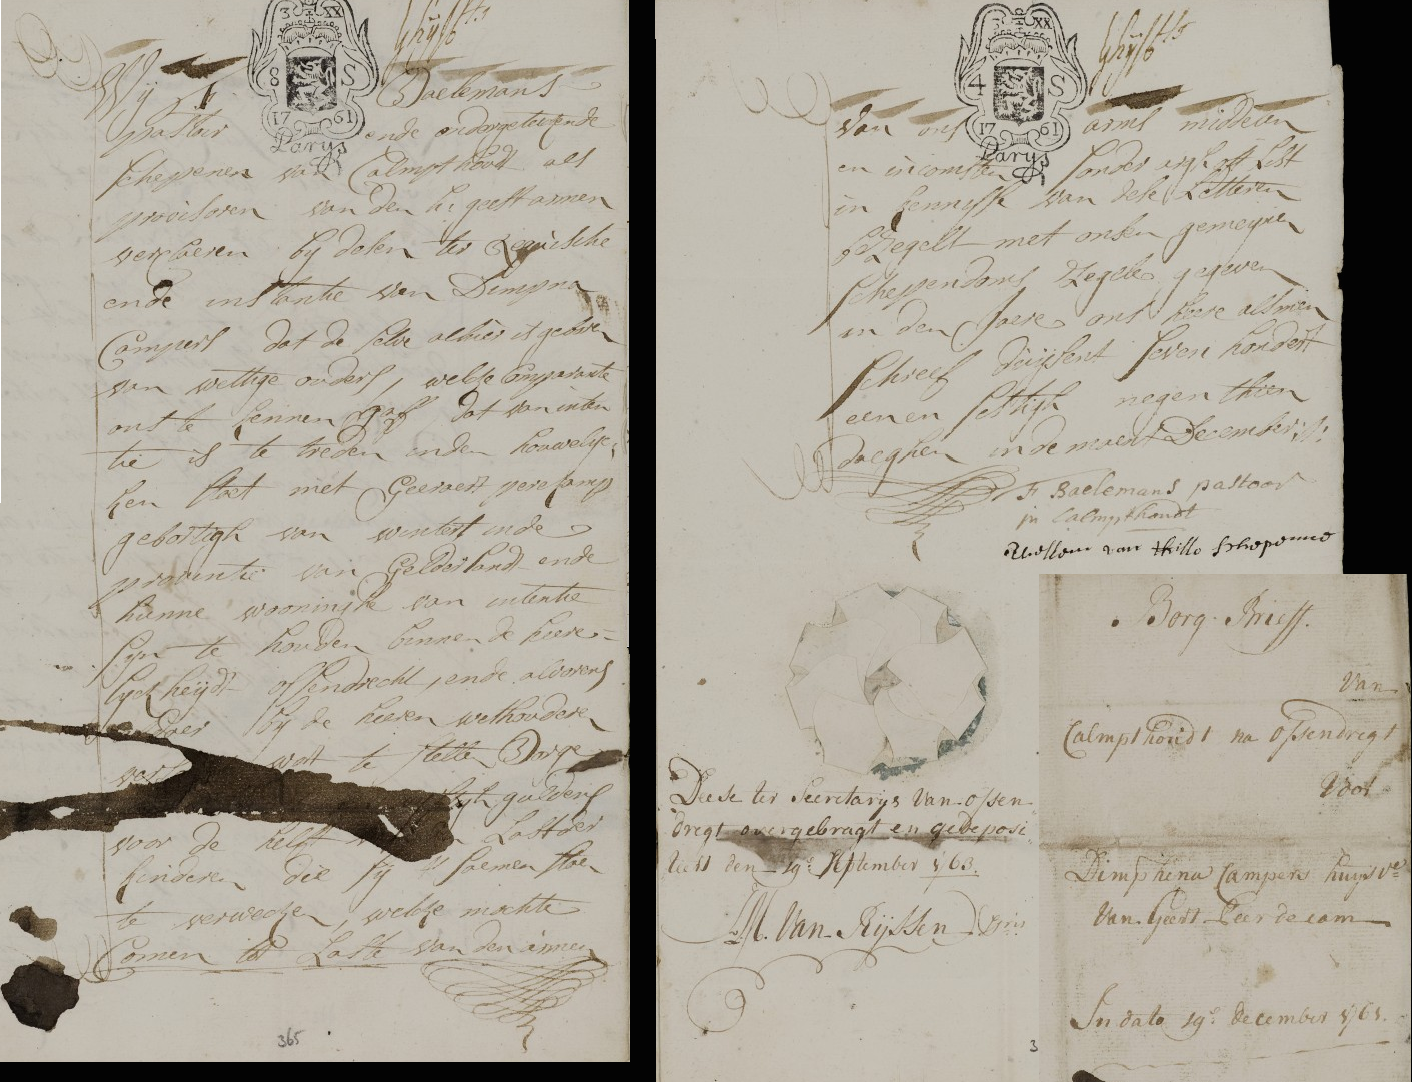 3 XX
8 S
17 61
Parys
Wij F. Baelemans
pastoir ende ondergeteeckende
schepenen van Calmpthoudt als
provisoren van den h: geest armen
verclaeren bij desen ter requisitie
ende instantie van Dimpna
Campers dat de selve alhier is geboren
van wettige ouders, welcke Comparante
ons te kennen gaf dat van inten
tie is te treden in den houwelijc
ken staet met Geeraert peerekamp
gebortigh van wintert in de
provintie van Gelderlandt ende
hunne wooninghe van intentie
syn te houden binnen de heere-
lyckheijdt ossendrecht, ende alvorens
bij de heeren wethouderen
wat te stelle Borge
guldens
voor de helft Last der
kinderen die sij t'saemen staen
te verwecken, welcke mochte
Comen tot Laste van den armen
365
3 XX
4 S
17 61
Parys
van ons arms middelen
en incomsten sonder ergh oft List
in kennisse van dese Letteren
beZegelt met onsen gemeynen
schependoms Zegele gegeven
in den Jaere ons heere alsmen
schreef duijsent seven hondert
een en sestigh negen thien
daeghen in de maent December
F. Baelemans pastoor
in Calmpthoudt
Willem van thillo schepenne
Deese ter Secretarys Van Ossen
dregt overgebragt en gedeposi
teert den 19e September 1763.
M. Van Rijssen
3
Borg Brieff.
Van
Calmpthoudt na Ossendregt
Voor
Dimphena Campers huysve
Van Geert Peerdecam
In dato 19e december 1761.